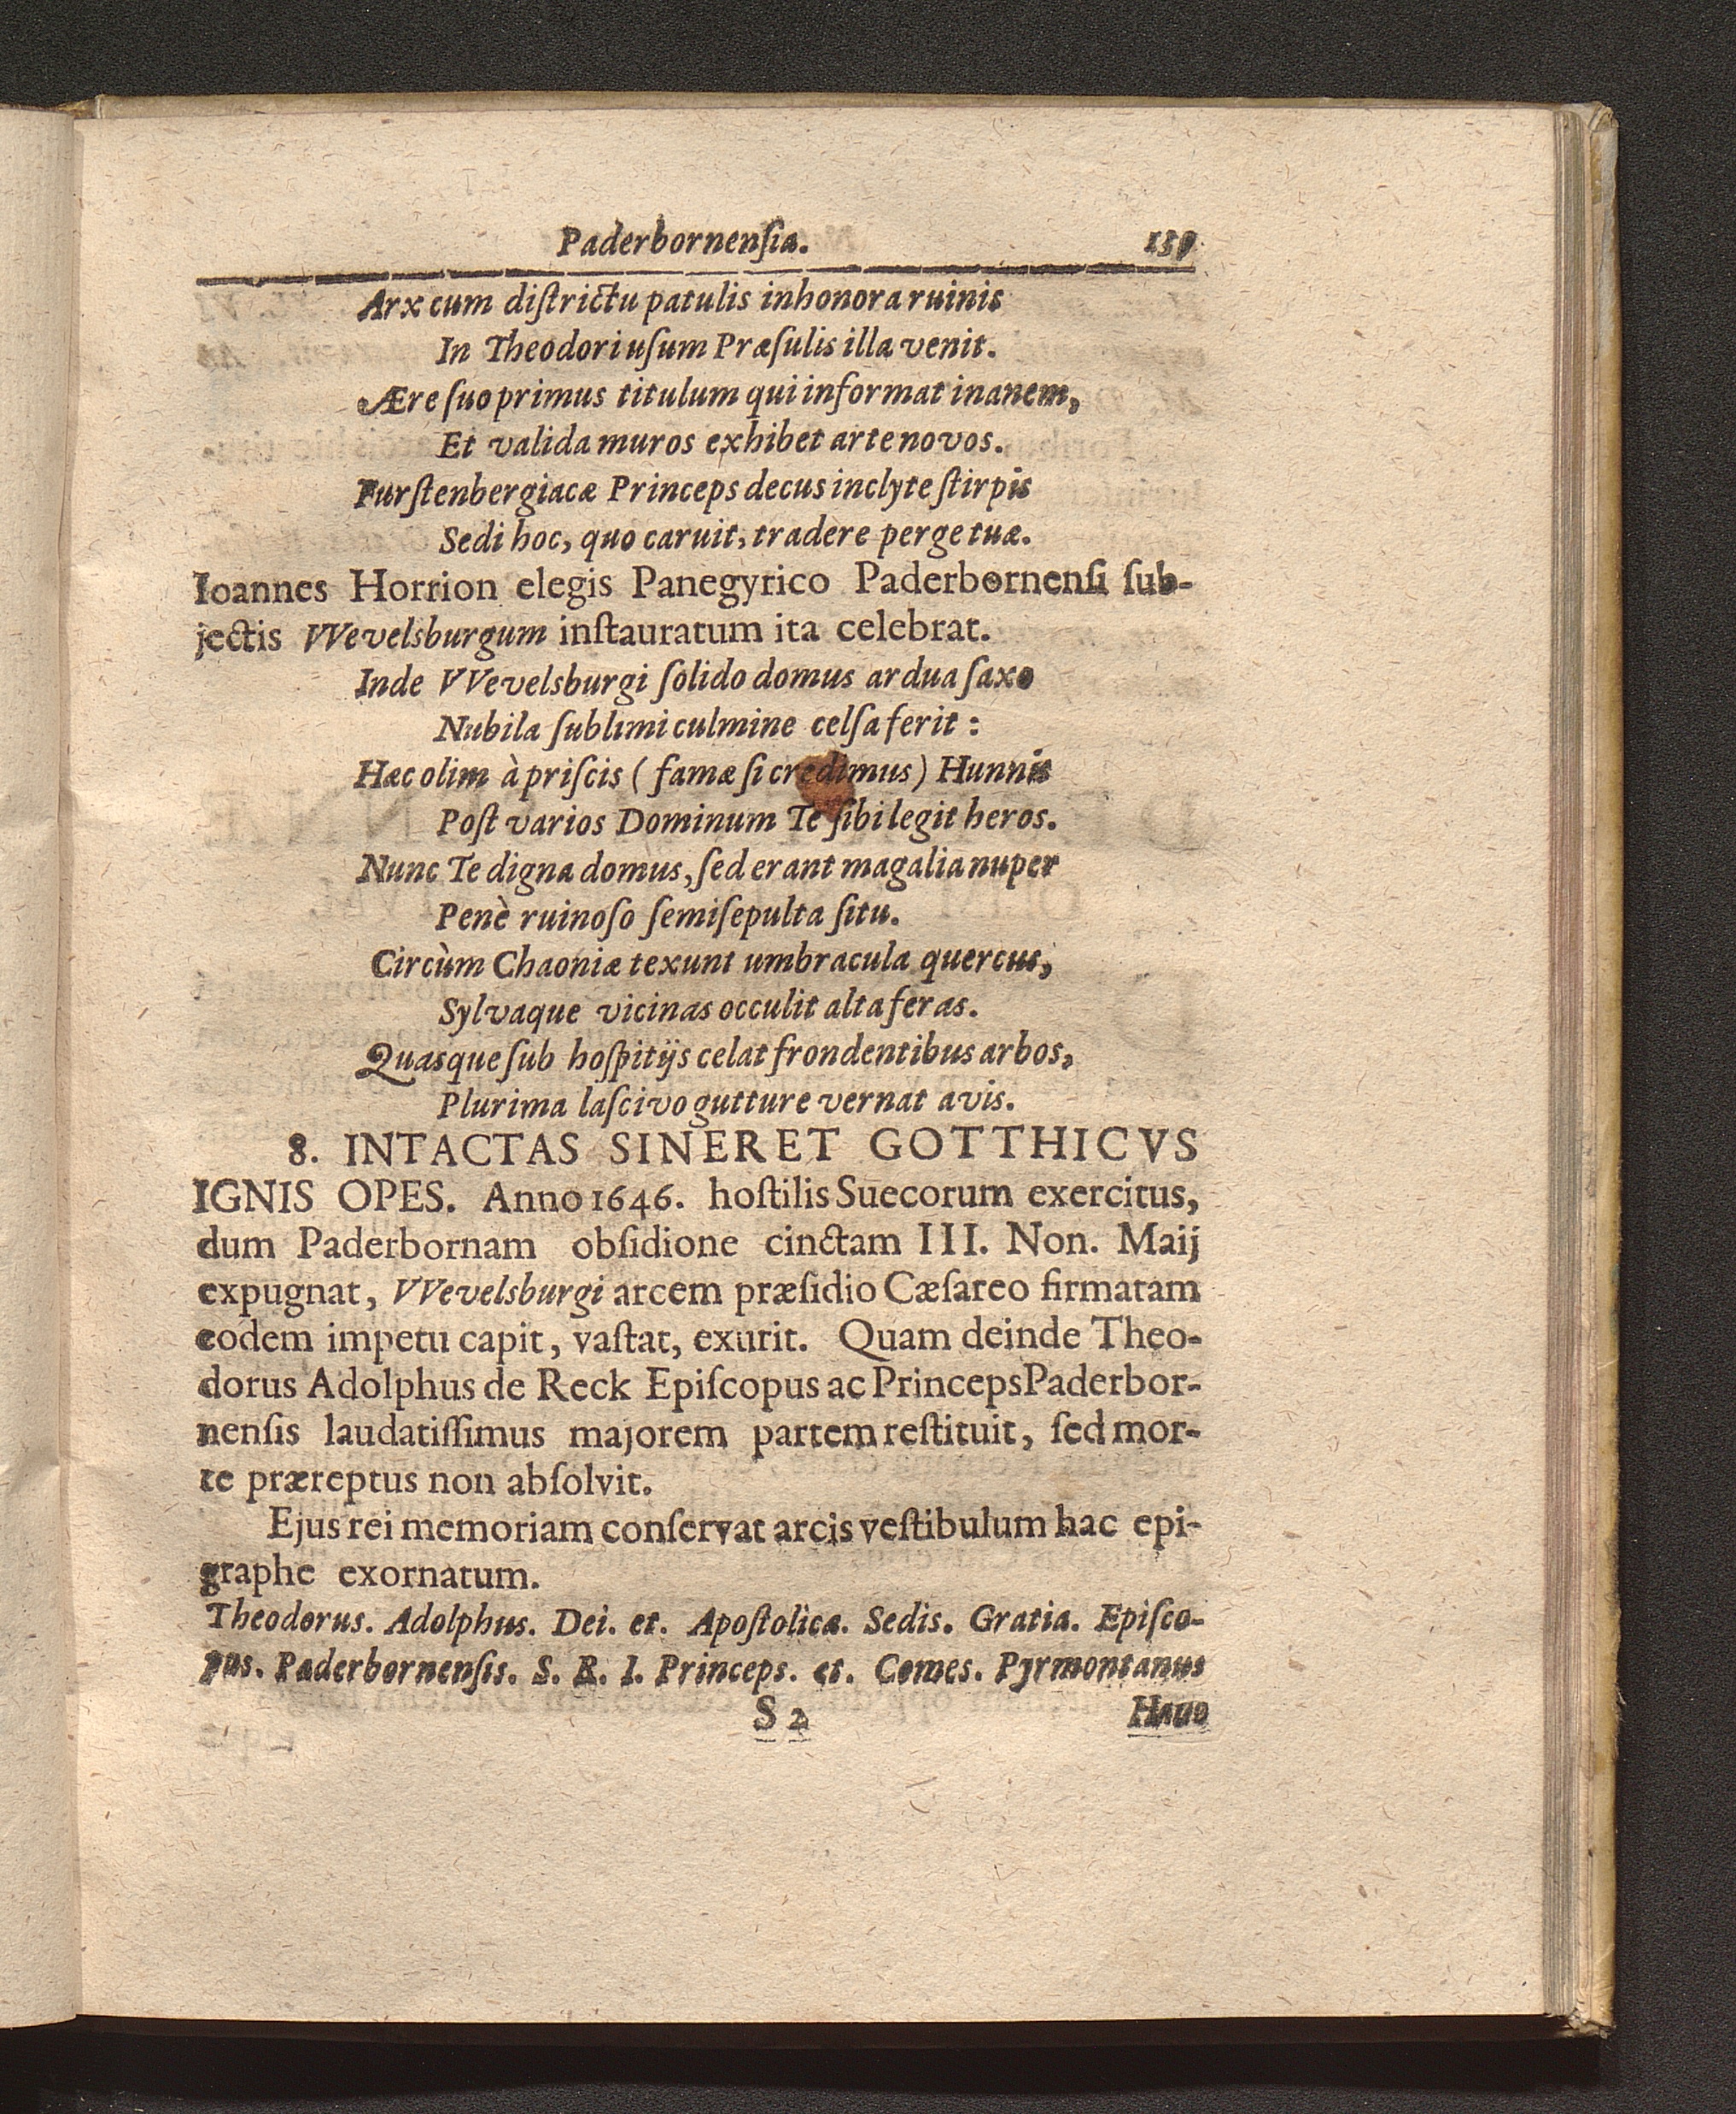 Paderbornenſia. 139
Arx cum diſtrictu patulis inhonora ruinis
In Theodori uſum Præſulis illa venit.
Ære ſuo primus titulum qui informat inanem,
Et valida muros exhibet arte novos.
Furſtenbergiacæ Princeps decus inclyte ſtirpis
Sedi hoc, quo caruit, tradere perge tuæ.
Ioannes Horrion elegis Panegyrico Paderbornenſi ſub-
jectis VVevelsburgum inſtauratum ita celebrat.
Inde VVevelsburgi ſolido domus ardua ſaxo
Nubila ſublimi culmine celſa ferit:
Hæc olim à priſcis (famæ ſi credimus) Hunnis
Poſt varios Dominum Te ſibi legit heros.
Nunc Te digna domus, ſed erant magalia nuper
Penè ruinoſo ſemiſepulta ſitu.
Circùm Chaoniæ texunt umbracula quercus,
Sylvaque vicinas occulit alta feras.
Quasque ſub hoſpitijs celat frondentibus arbos,
Plurima laſcivo gutture vernat avis.
8. INTACTAS SINERET GOTTHICVS
IGNIS OPES. Anno 1646. hoſtilis Suecorum exercitus,
dum Paderbornam obſidione cinctam III. Non. Maij
expugnat, VVevelsburgi arcem præſidio Cæſareo firmatam
eodem impetu capit, vaſtat, exurit. Quam deinde Theo-
dorus Adolphus de Reck Epiſcopus ac Princeps Paderbor-
nenſis laudatiſſimus majorem partem reſtituit, ſed mor-
te præreptus non abſolvit.
Ejus rei memoriam conſervat arcis veſtibulum hac epi-
graphe exornatum.
Theodorus. Adolphus. Dei. et. Apoſtolicæ. Sedis. Gratia. Epiſco-
pus. Paderbornenſis. S. R. I. Princeps. et. Comes. Pyrmontanus
S 2 Hauo